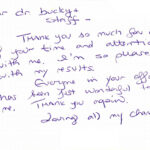 dr. bucky &
staff -
Thank you so much for
your time and attention
me. I'm so pleased
with my results.
Everyone in your office
has been just wonderful to
me. Thank you again.
Loving all my